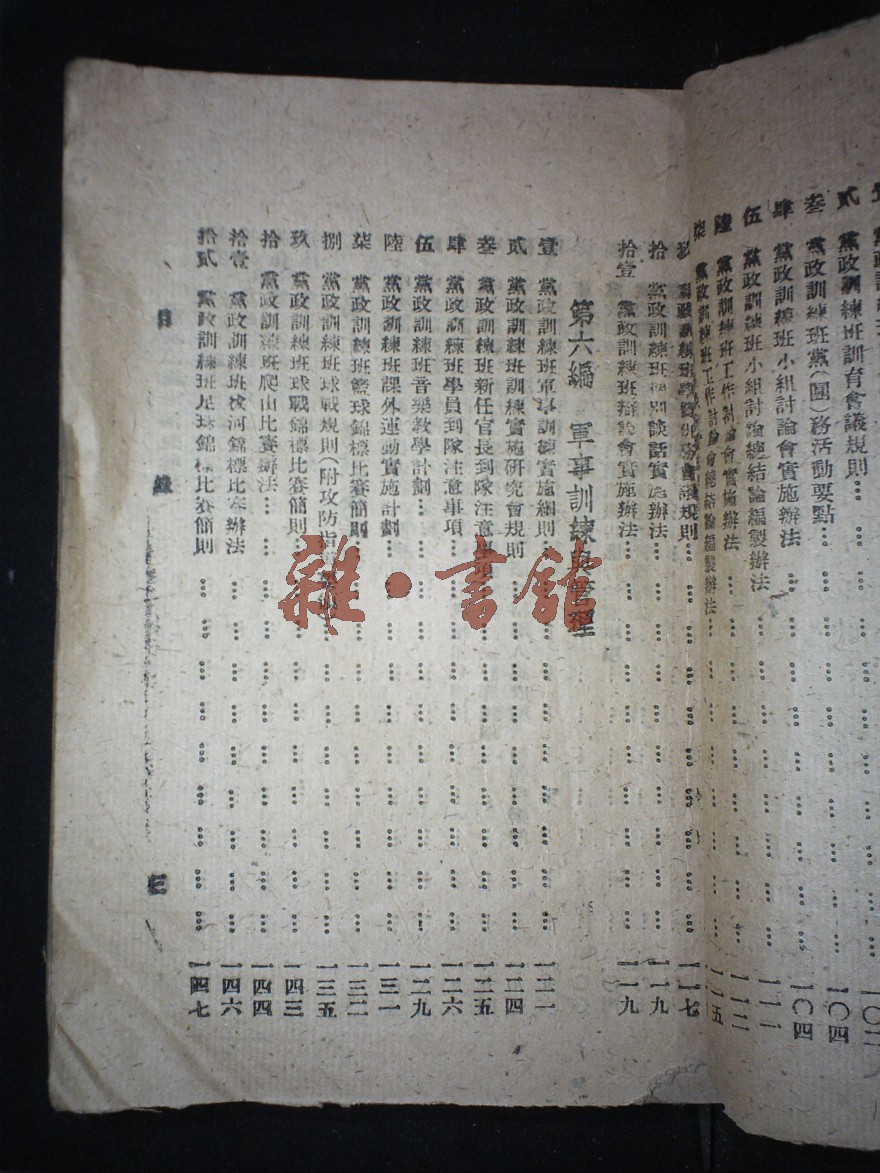 貳 黨政訓練班訓育會議規則 … 一〇四
叁 黨政訓練班黨(團)務活動要點 …
肆 黨政訓練班小組討論會實施辦法 … 一〇四
伍 黨政訓練班小組討論總結論編製辦法 … 一一一
陸 黨政訓練班工作討論會實施辦法 … 一一二
柒 黨政訓練班工作討論會總結論編製辦法 … 一一五
黨政訓練班 會議規則 … 一一七
拾 黨政訓練班個別談話實施辦法 … 一一九
拾壹 黨政訓練班辯論會實施辦法 … 一一九
第六編 軍事訓練與管理
壹 黨政訓練班軍事訓練實施綱則 … 一二一
貳 黨政訓練班訓練實施研究會規則 … 一二四
叁 黨政訓練班新任官長到隊注意事項 … 一二五
肆 黨政訓練班學員到隊注意事項 … 一二六
伍 黨政訓練班音樂教學計劃 … 一二九
陸 黨政訓練班課外運動實施計劃 … 一三一
柒 黨政訓練班籃球錦標比賽簡則 … 一三二
捌 黨政訓練班球戰規則(附攻防指 … 一三五
玖 黨政訓練班球戰錦標比賽簡則 … 一四三
拾 黨政訓練班爬山比賽辦法 … 一四四
拾壹 黨政訓練班拔河錦標比賽辦法 … 一四六
拾貳 黨政訓練班足球錦標比賽簡則 … 一四七
目 錄
三
雜·書館